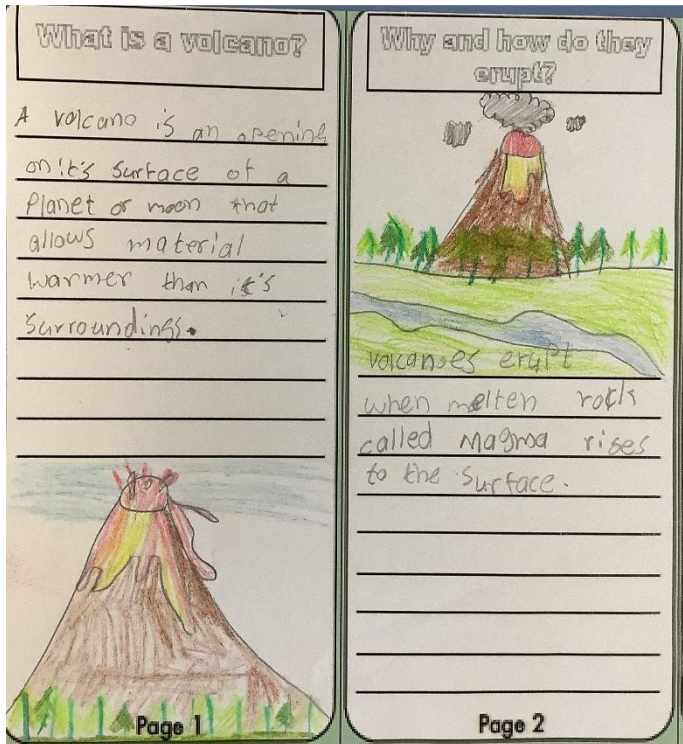 What is a volcano?
A volcano is an opening
on it's surface of a
Planet or moon that
allows material
warmer than it's
surroundings.
Page 1
Why and how do they
erupt?
volcanoes erupt
when melten rock
called Magma rises
to the surface.
Page 2